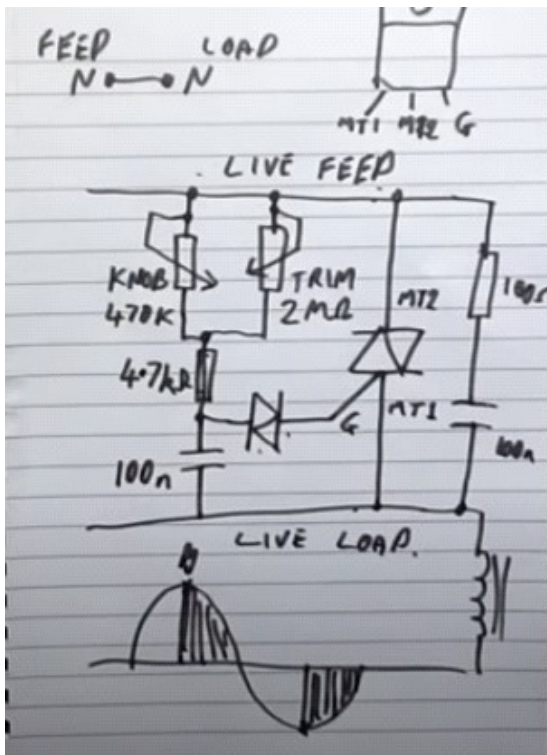 FEED LOAD
N N
MT1 MT2 G
LIVE FEED
KNOB
470K
TRIM
2MΩ
MT2
100Ω
4.7kΩ
G
MT1
100n
100n
LIVE LOAD.